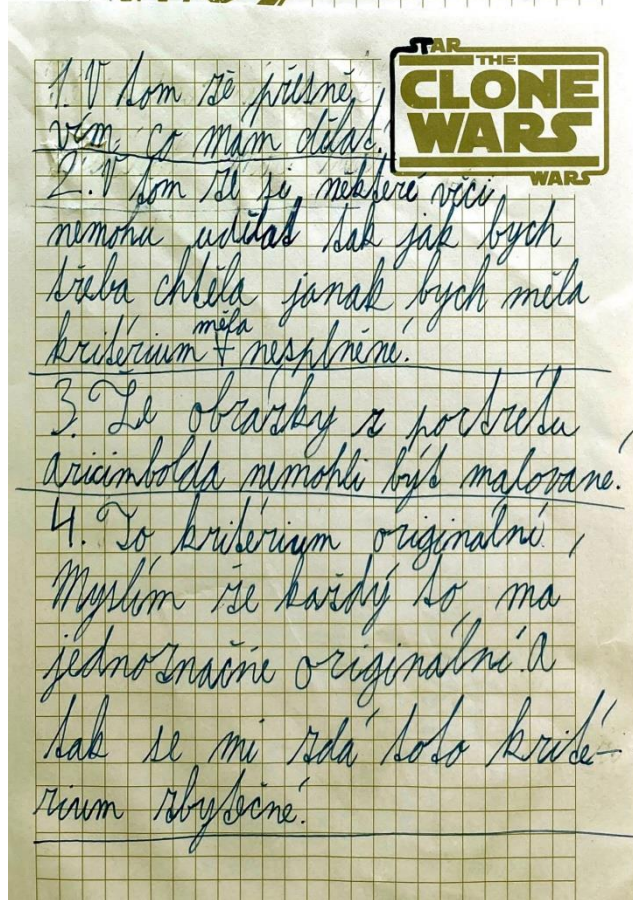 STAR
THE
CLONE
WARS
WARS
1. V tom že přesně
vím, co mám dělat.
2. V tom že si některé věci
nemohu udělat tak jak bych
třeba chtěla janak bych měla
měla
kritérium nesplněné.
3. Že obrázky z portrétu
aricimbolda nemohli být malované.
4. To kritérium originální,
Myslím že každý to má
jednoznačně originální. A
tak se mi zdá toto krité-
rium zbytečné.